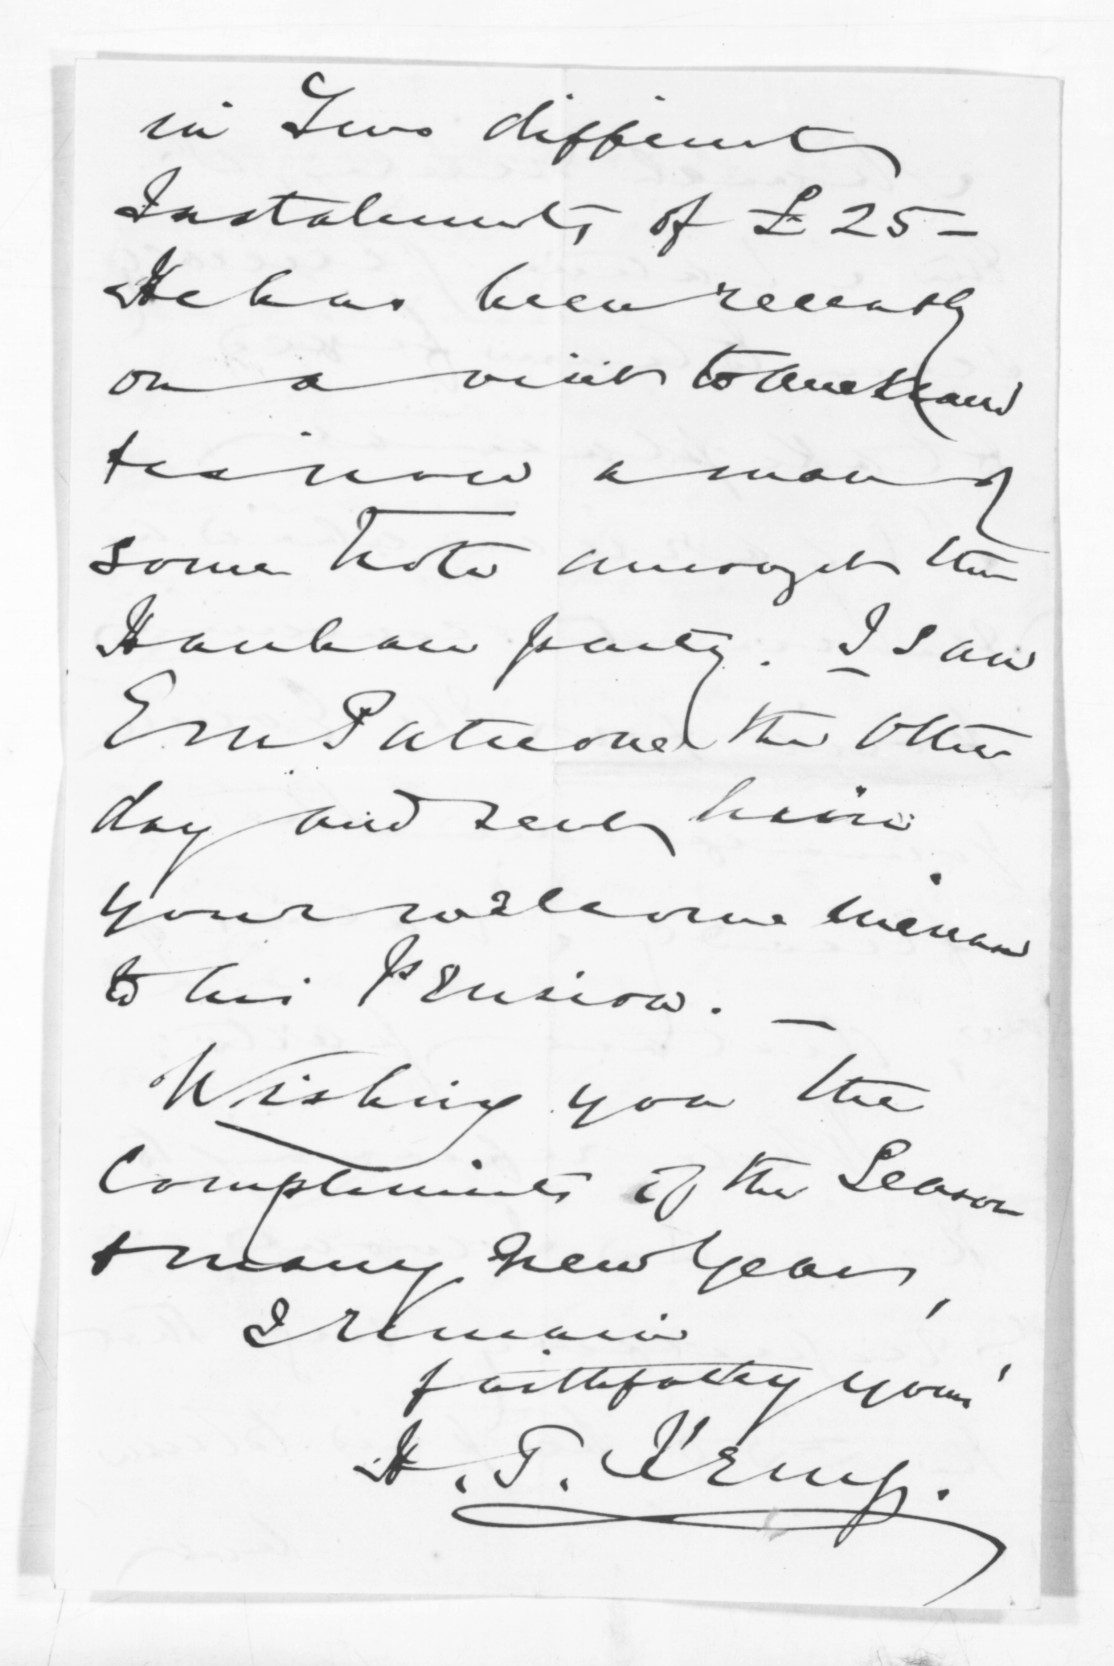 in Two different
Instalments of £25 –
He has been recently
on a visit to Auckland
& is now a man of
some note amongst the
Hauhau party. I saw
Eru Patuone the other
day and sent him
your welcome
to his Pension. –
Wishing you the
Compliments of the Season
& many New Years,
I remain
faithfully yours
H. T. Kemp.